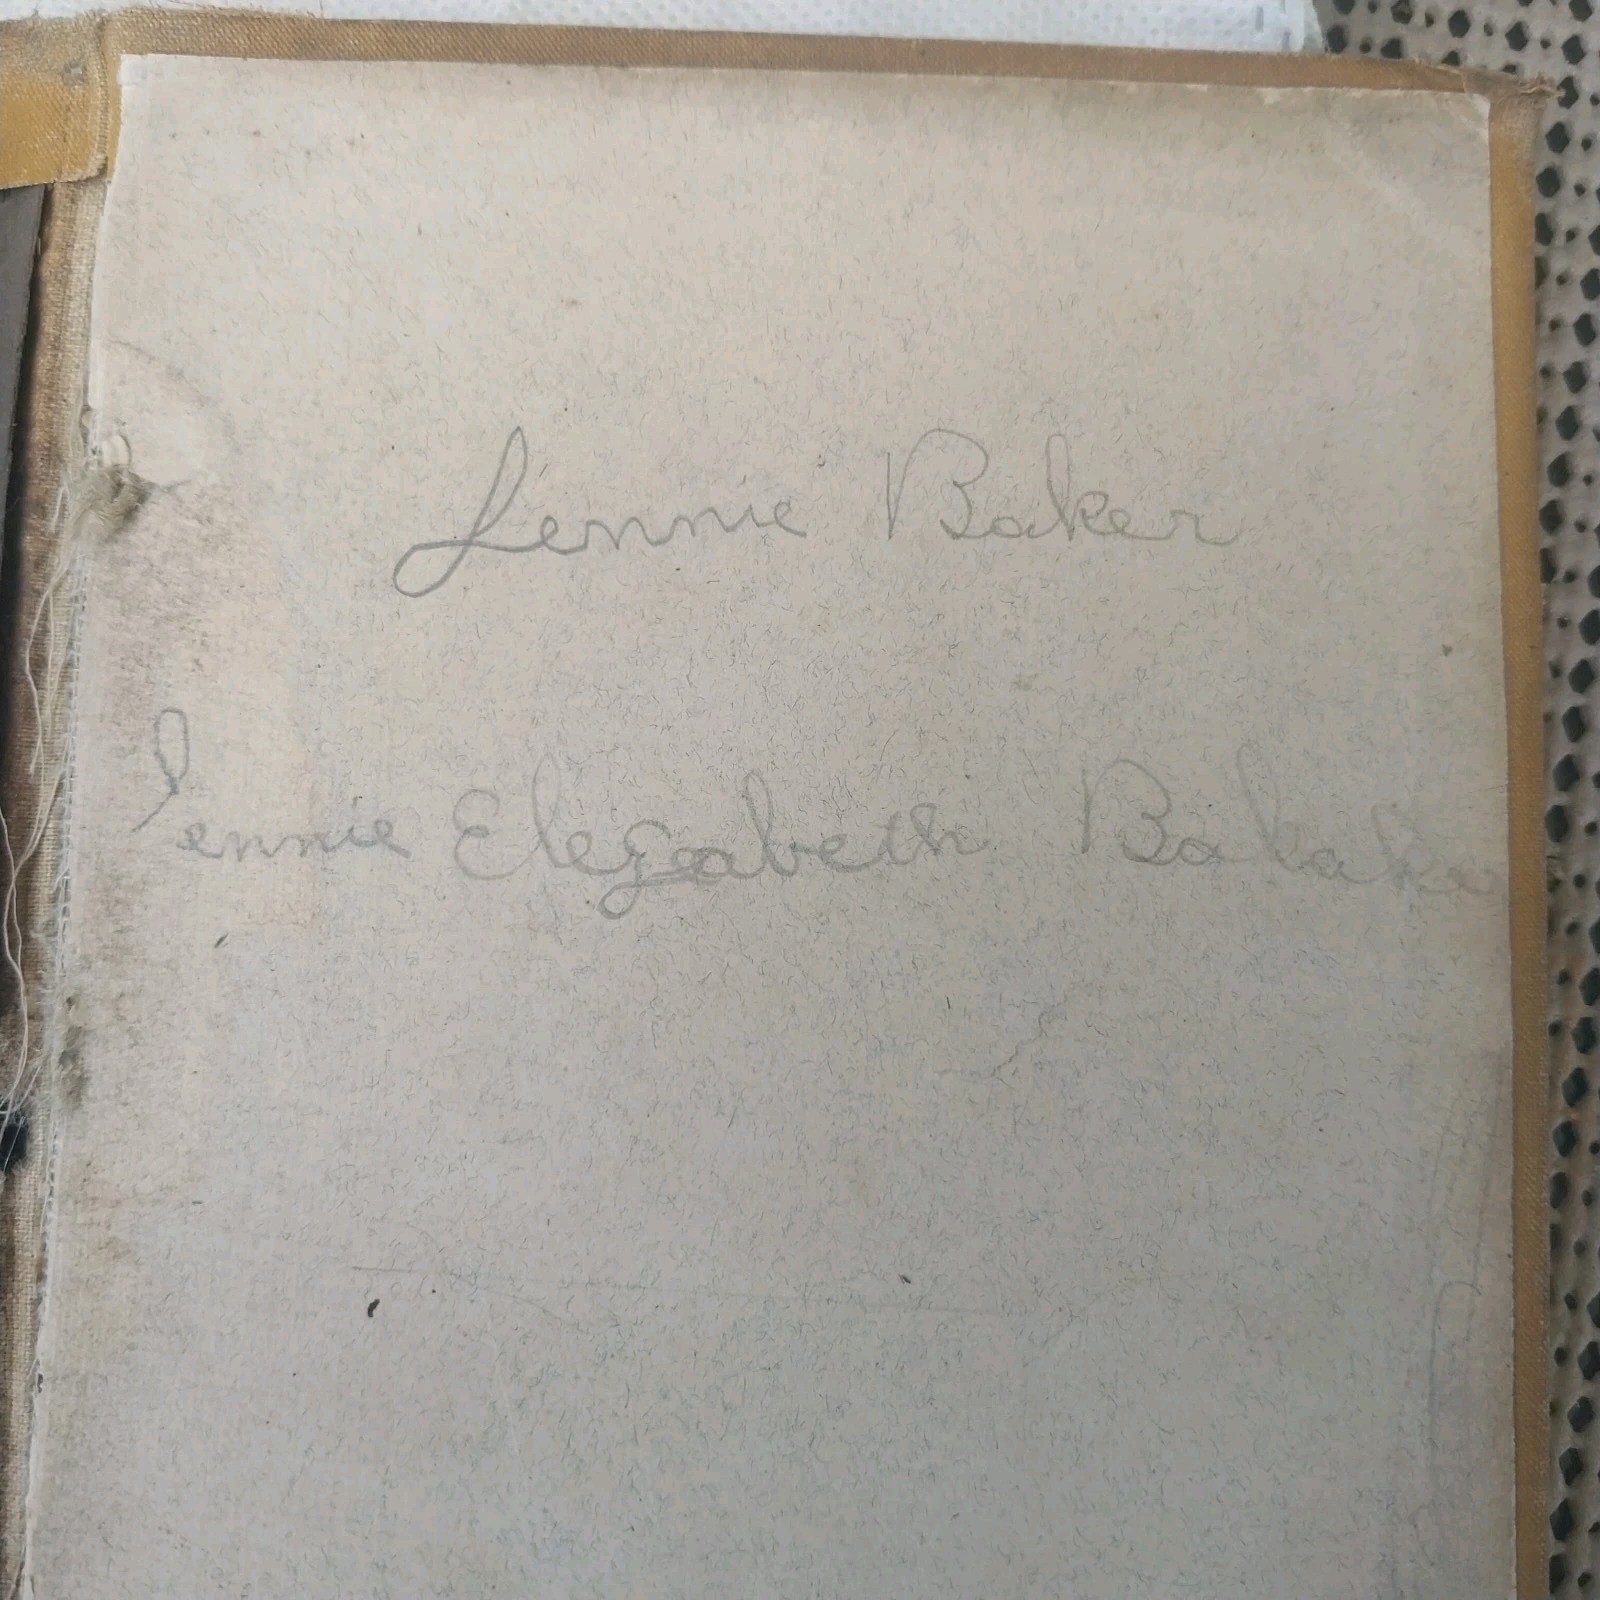 Jennie Baker
Jennie Elezabeth Bakake